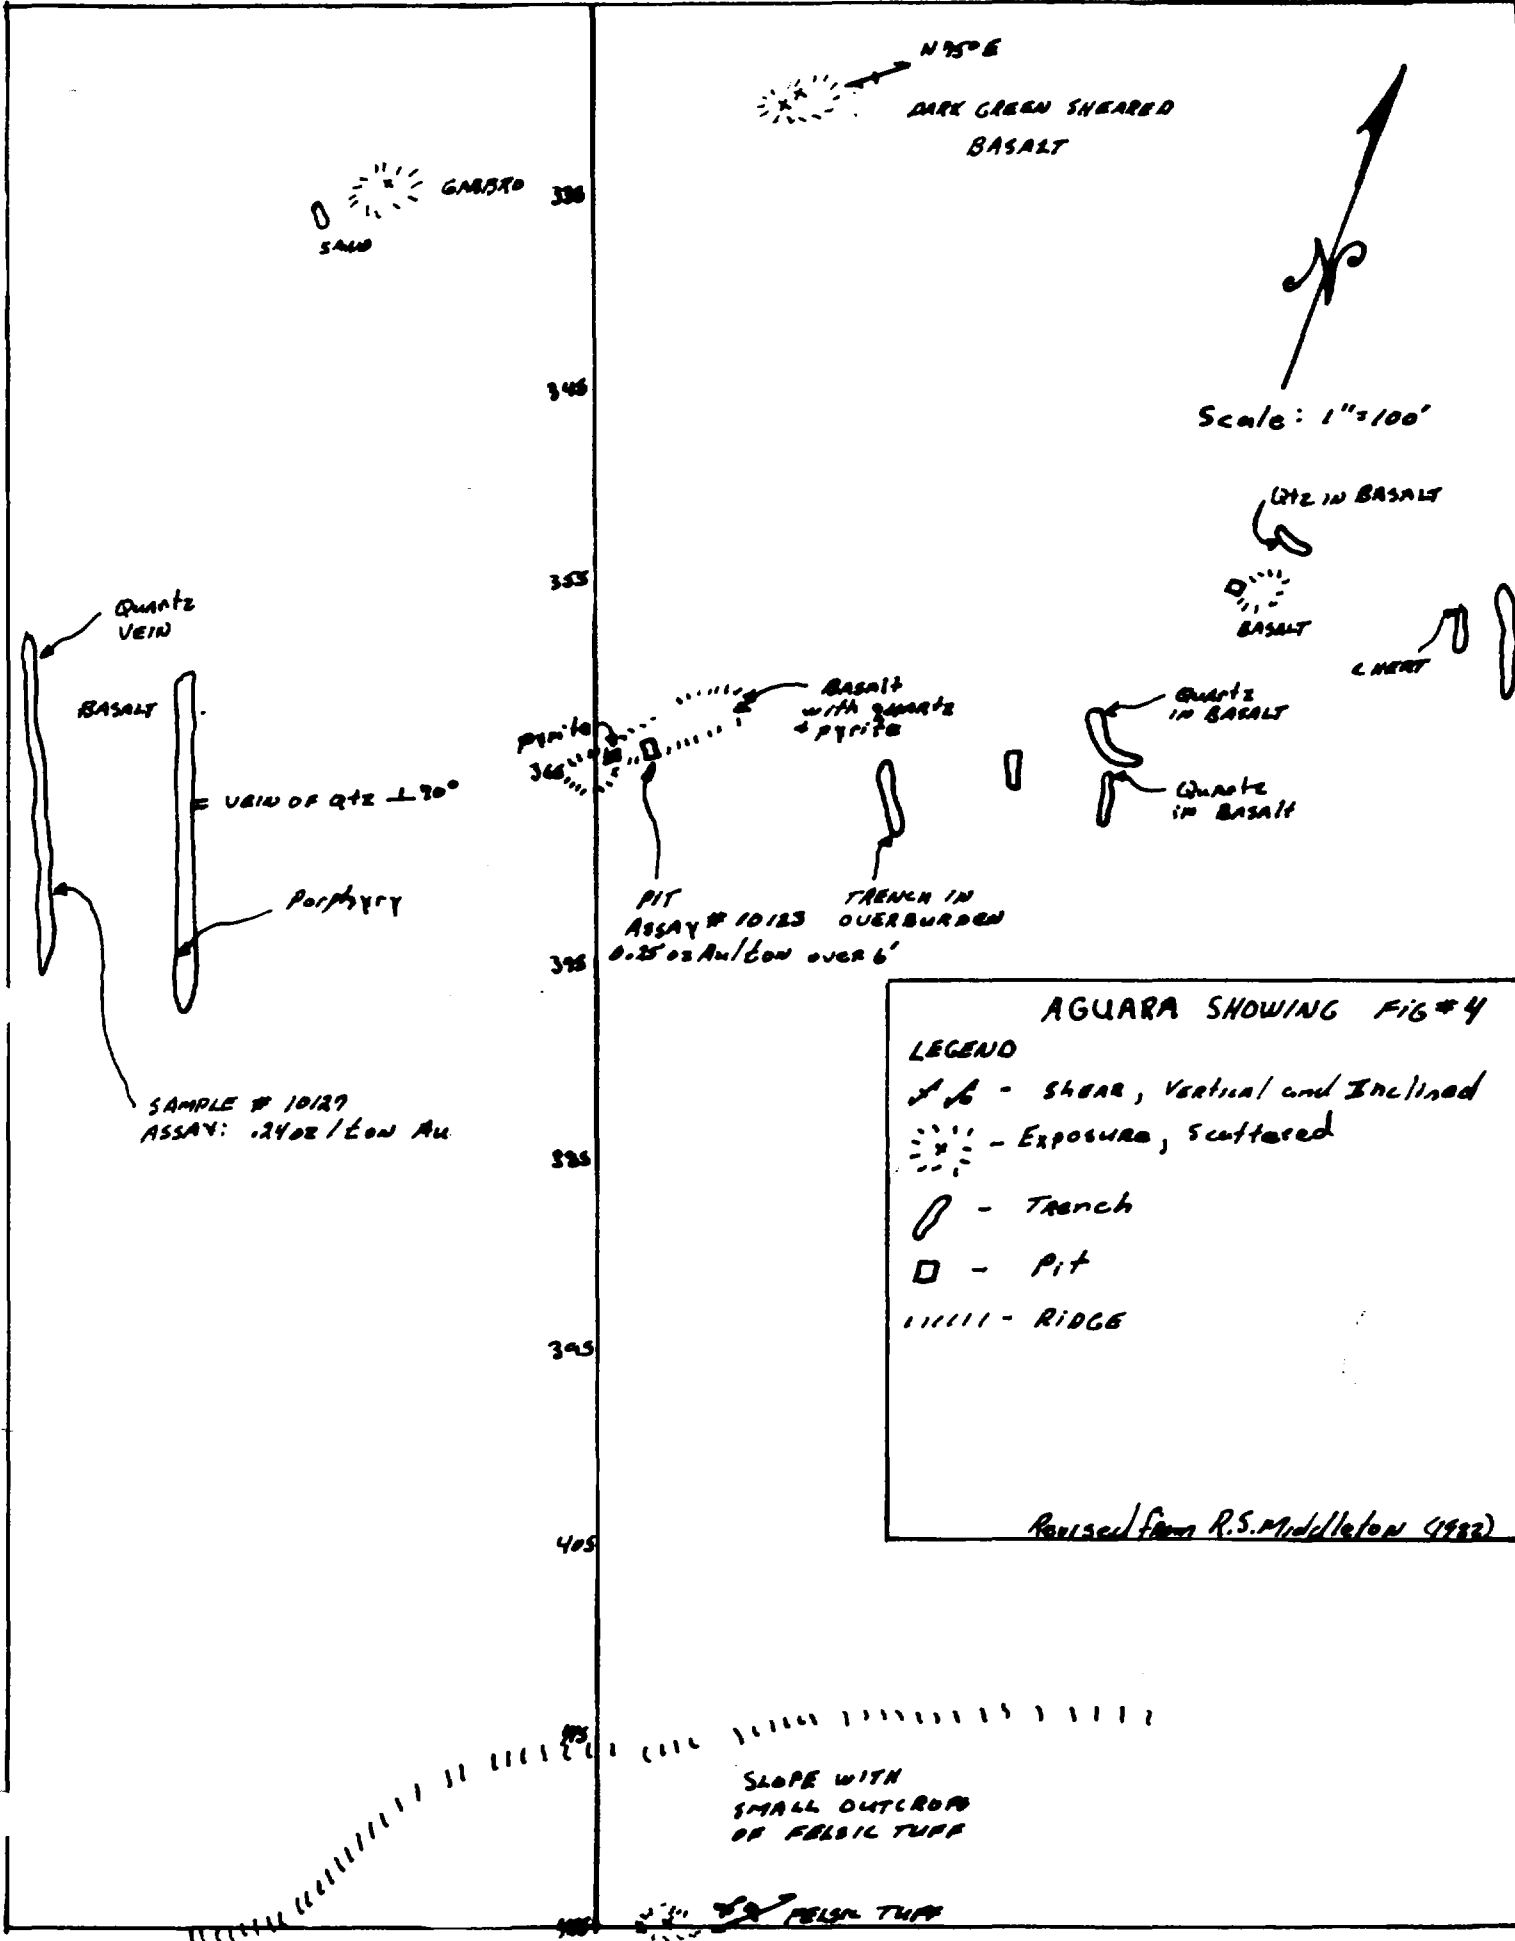 N 75° E
DARK GREEN SHEARED
BASALT
GABBRO
SAND
33S
34S
Scale: 1"=100'
Qtz IN BASALT
35S
BASALT
CHERT
Quartz
VEIN
BASALT
Basalt
with quartz
+ pyrite
Quartz
IN BASALT
pyrite
36S
= VEIN OF Qtz ⊥ 90°
Quartz
in BASAlt
Porphyry
PIT
ASSAY # 10123
0.25 oz Au/ton over 6'
TRENCH IN
OVERBURDEN
39S
SAMPLE # 10127
ASSAY: .24 oz / ton Au
38S
39S
40S
41S
AGUARA SHOWING FiG # 4
LEGEND
- SHEAR, Vertical and Inclined
- Exposure, Scattered
- Trench
- Pit
- RiDGE
Revised from R.S. Middleton (1982)
SLOPE WITH
SMALL OUTCROPS
OF FELSIC TUFF
FELSIC TUFF